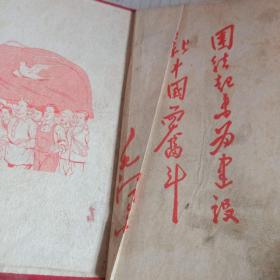 团结起来为建设
新中國而奮斗
毛泽东